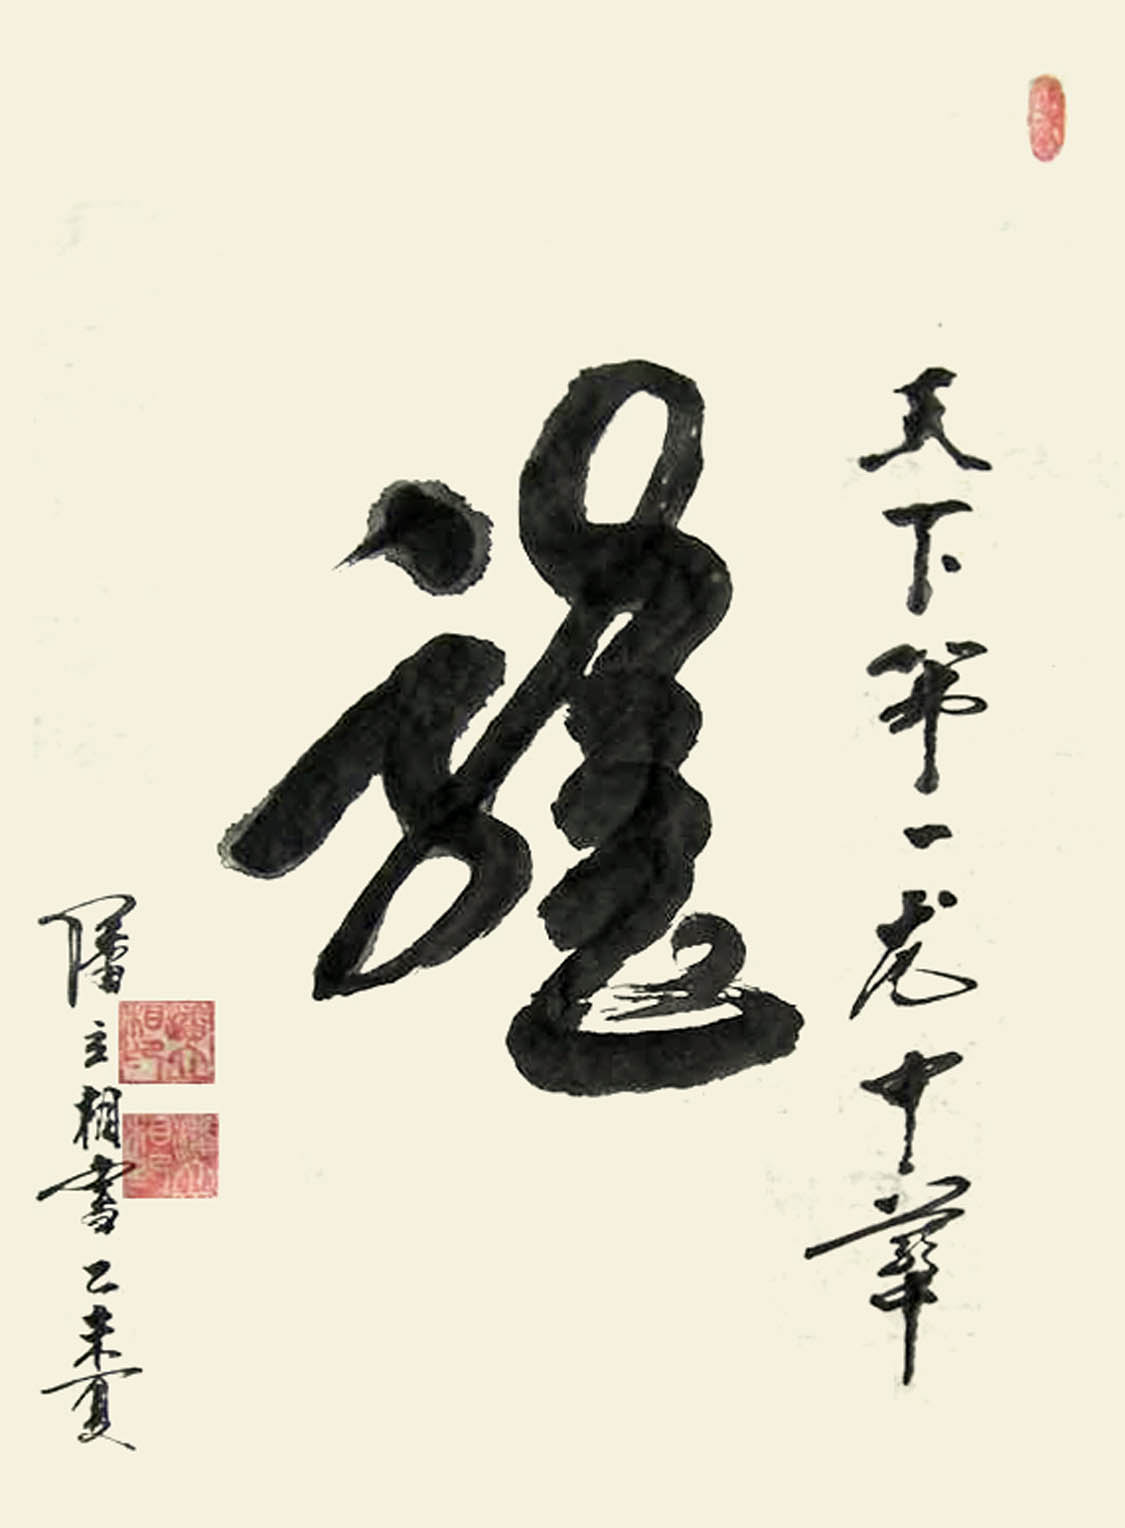 天下第一龙中华
龍
潘主相書乙未夏